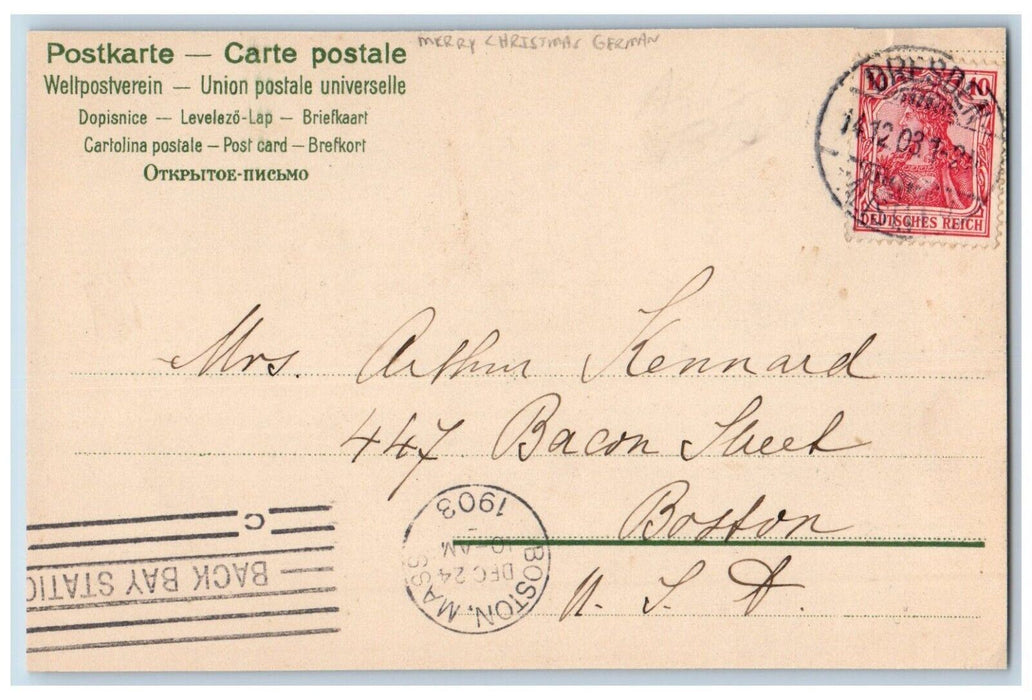 Postkarte — Carte postale
MERRY CHRISTMAS GERMAN
Weltpostverein — Union postale universelle
Dopisnice — Levelező-Lap — Briefkaart
Cartolina postale — Post card — Brefkort
Открытое-письмо
10 10
DRESDEN
14.12.03
DEUTSCHES REICH
Mrs. Arthur Kennard
447 Bacon Street
Boston
U. S. A.
BOSTON, MASS
DEC 24
10-AM
1903
C
BACK BAY STATIO